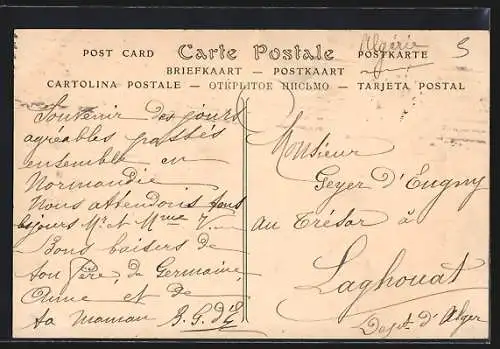 Algérie
5
POST CARD Carte Postale POSTKARTE
BRIEFKAART — POSTKAART
CARTOLINA POSTALE — ОТКРЫТОЕ ПИСЬМО — TARJETA POSTAL
Souvenir des jours
agréables passés
ensemble en
Normandie
Nous attendons tous
les jours Mr. et Mme V....
Bons baisers de
ton Père, de Germaine,
Anne et de
ta maman B.G.d'E
Monsieur
Geyer d'Eugny
au Trésor à
Laghouat
Dept. d'Alger